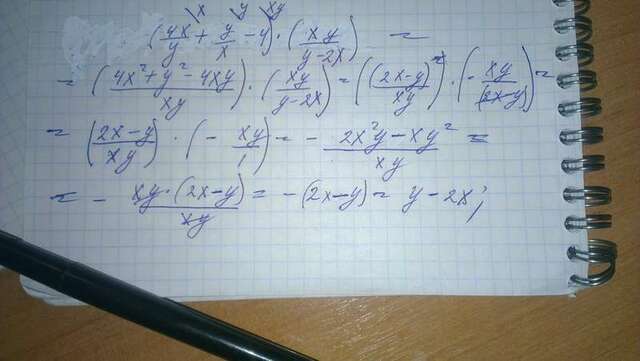 x y xy
(4x/y + y/x - 4) · (xy/(y-2x)) =
= ((4x²+y²-4xy)/xy) · (xy/(y-2x)) = ((2x-y)²/xy) · (-xy/(2x-y)) =
= ((2x-y)/xy) · (-xy/1) = - (2x²y-xy²)/xy =
= - (xy·(2x-y))/xy = -(2x-y) = y-2x;